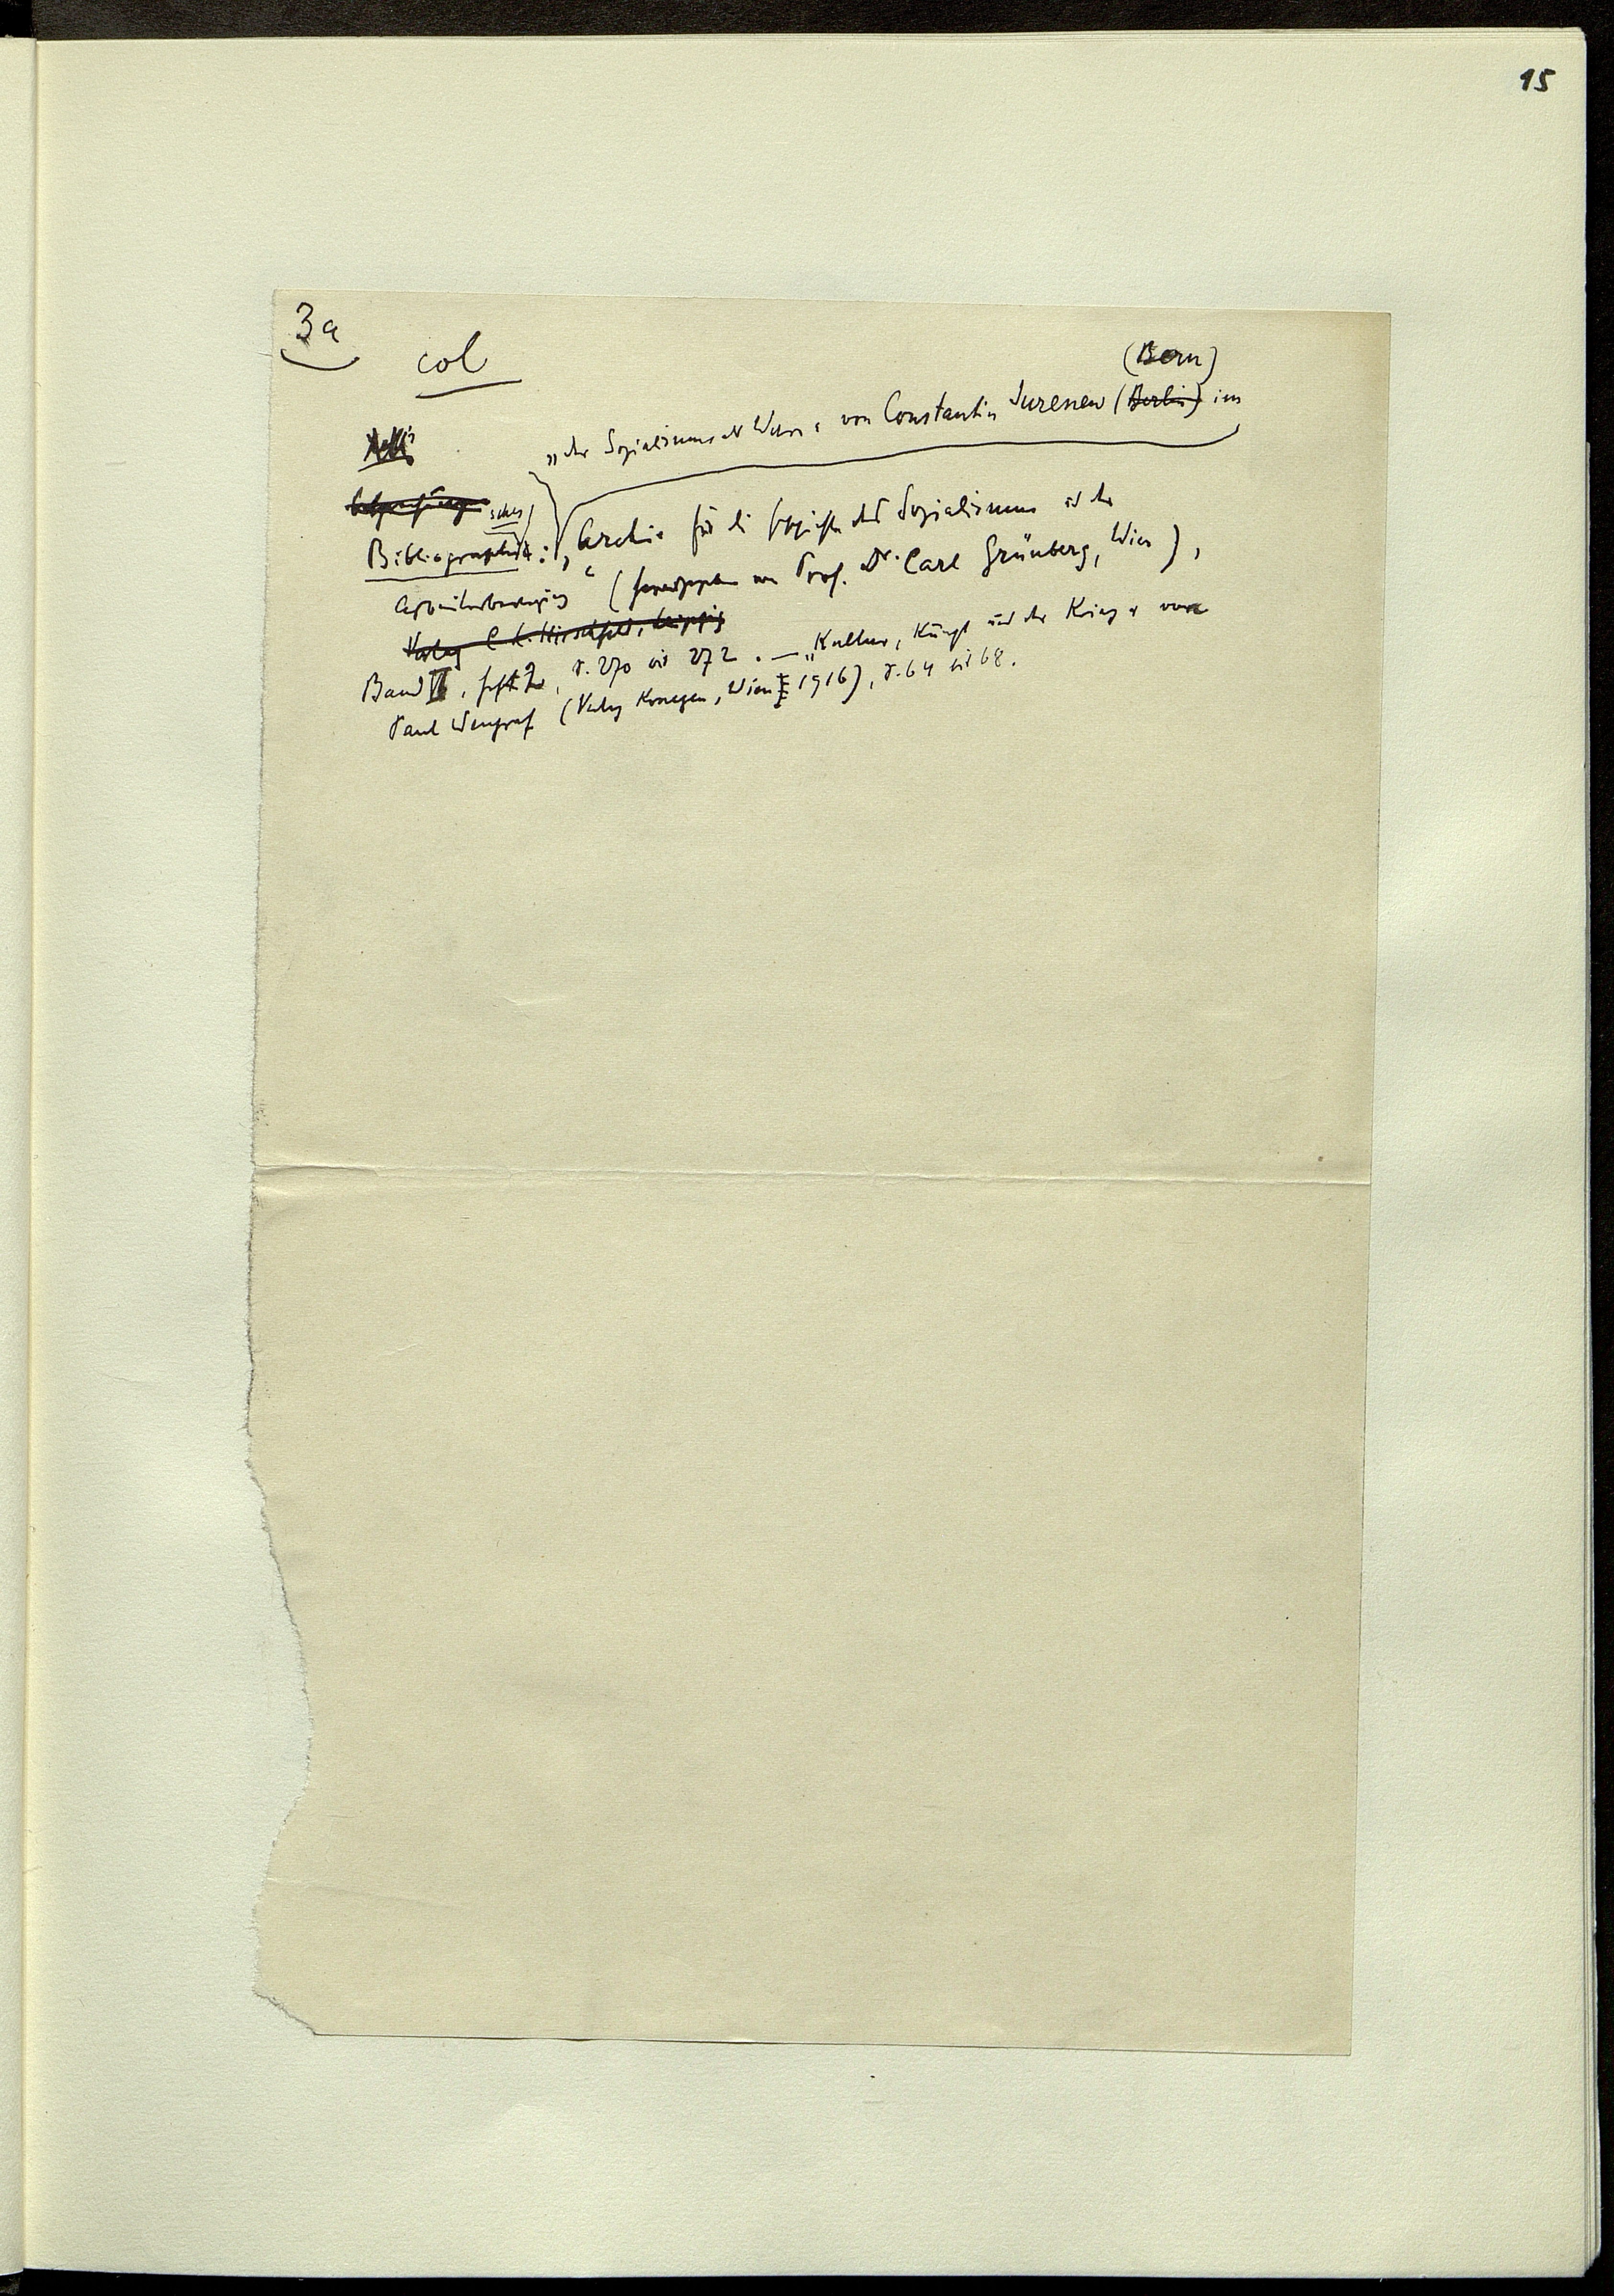 15
3a
col
(Bern)
„der Sozialismus als Wehr“ von Constantin Surenew (Berlin) im
Bibliographisches: „Archiv für die Geschichte des Sozialismus und der
Arbeiterbewegung“ (herausgegeben von Prof. Dr. Carl Grünberg, Wien),
Verlag C. L. Hirschfeld, Leipzig
Band VI, Heft 2, S. 270 bis 272. — „Kultur, Kunst und der Krieg“ von
Paul Wengraf (Verlag Konegen, Wien 1916), S. 64 bis 68.